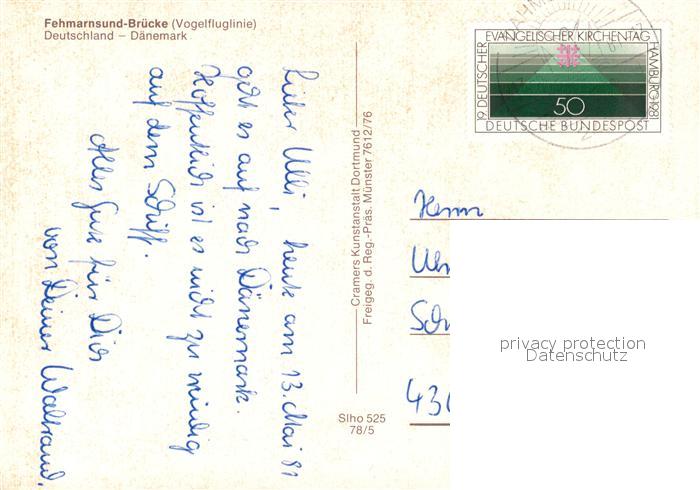 Fehmarnsund-Brücke (Vogelfluglinie)
Deutschland – Dänemark
Lieber Ulli, heute am 13. Mai 81
geht es auf nach Dänemark.
Hoffentlich ist es nicht zu windig
auf dem Schiff.
Alles Gute für Dich
von Deiner Waltraud.
Cramers Kunstanstalt Dortmund
Freigeg. d. Reg.-Präs. Münster 7612/76
Slho 525
78/5
19. DEUTSCHER EVANGELISCHER KIRCHENTAG HAMBURG 1981
50
DEUTSCHE BUNDESPOST
Herrn
430
privacy protection
Datenschutz